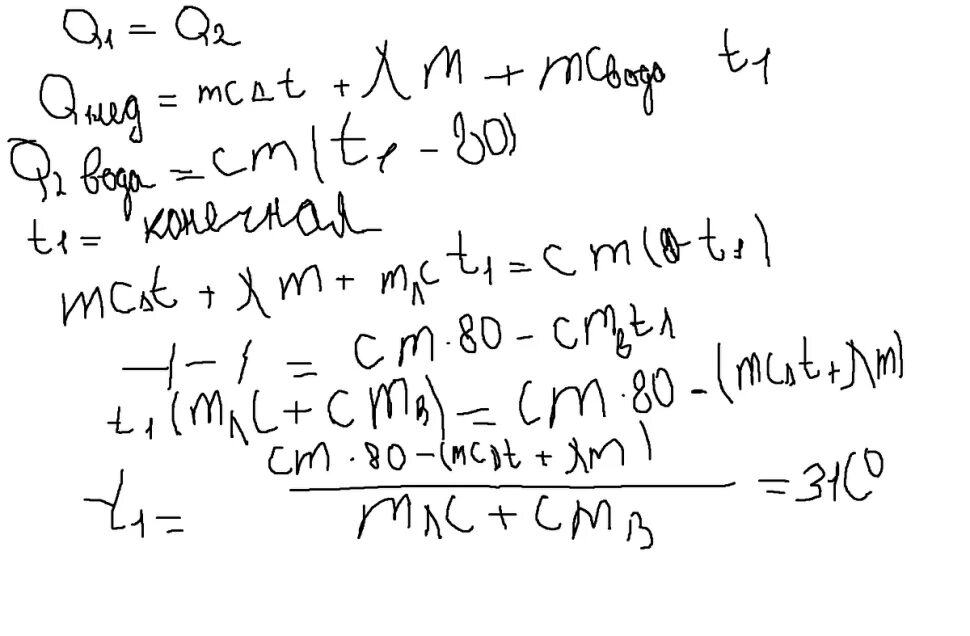 Q₁ = Q₂
Qлед = mcΔt + λm + mcвода t₁
Q₂ вода = cm(t₁ - 80)
t₁ = конечная
mcΔt + λm + mлc t₁ = cm( t₁)
= cm·80 - cmвt₁
t₁(mлc + cmв) = cm·80 - (mcΔt + λm)
cm·80 - (mcΔt + λm)
t₁ = = 31C⁰
mлc + cmв